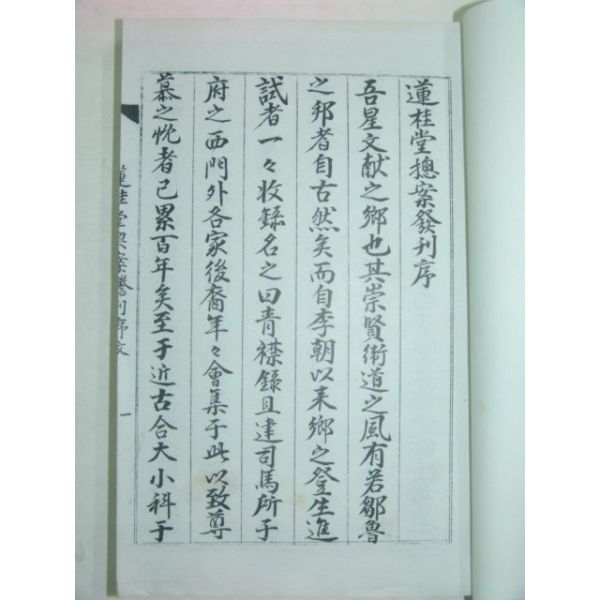 蓮桂堂摠案發刊序
吾星文献之鄉也其崇賢衛道之風有若鄒魯
之邦者自古然矣而自李朝以来鄉之登生進
試者一々收錄名之曰青襟錄且建司馬所于
府之西門外各家後裔年々會集于此以致尊
慕之忱者已累百年矣至于近古合大小科于
蓮桂堂案發刊序文
一